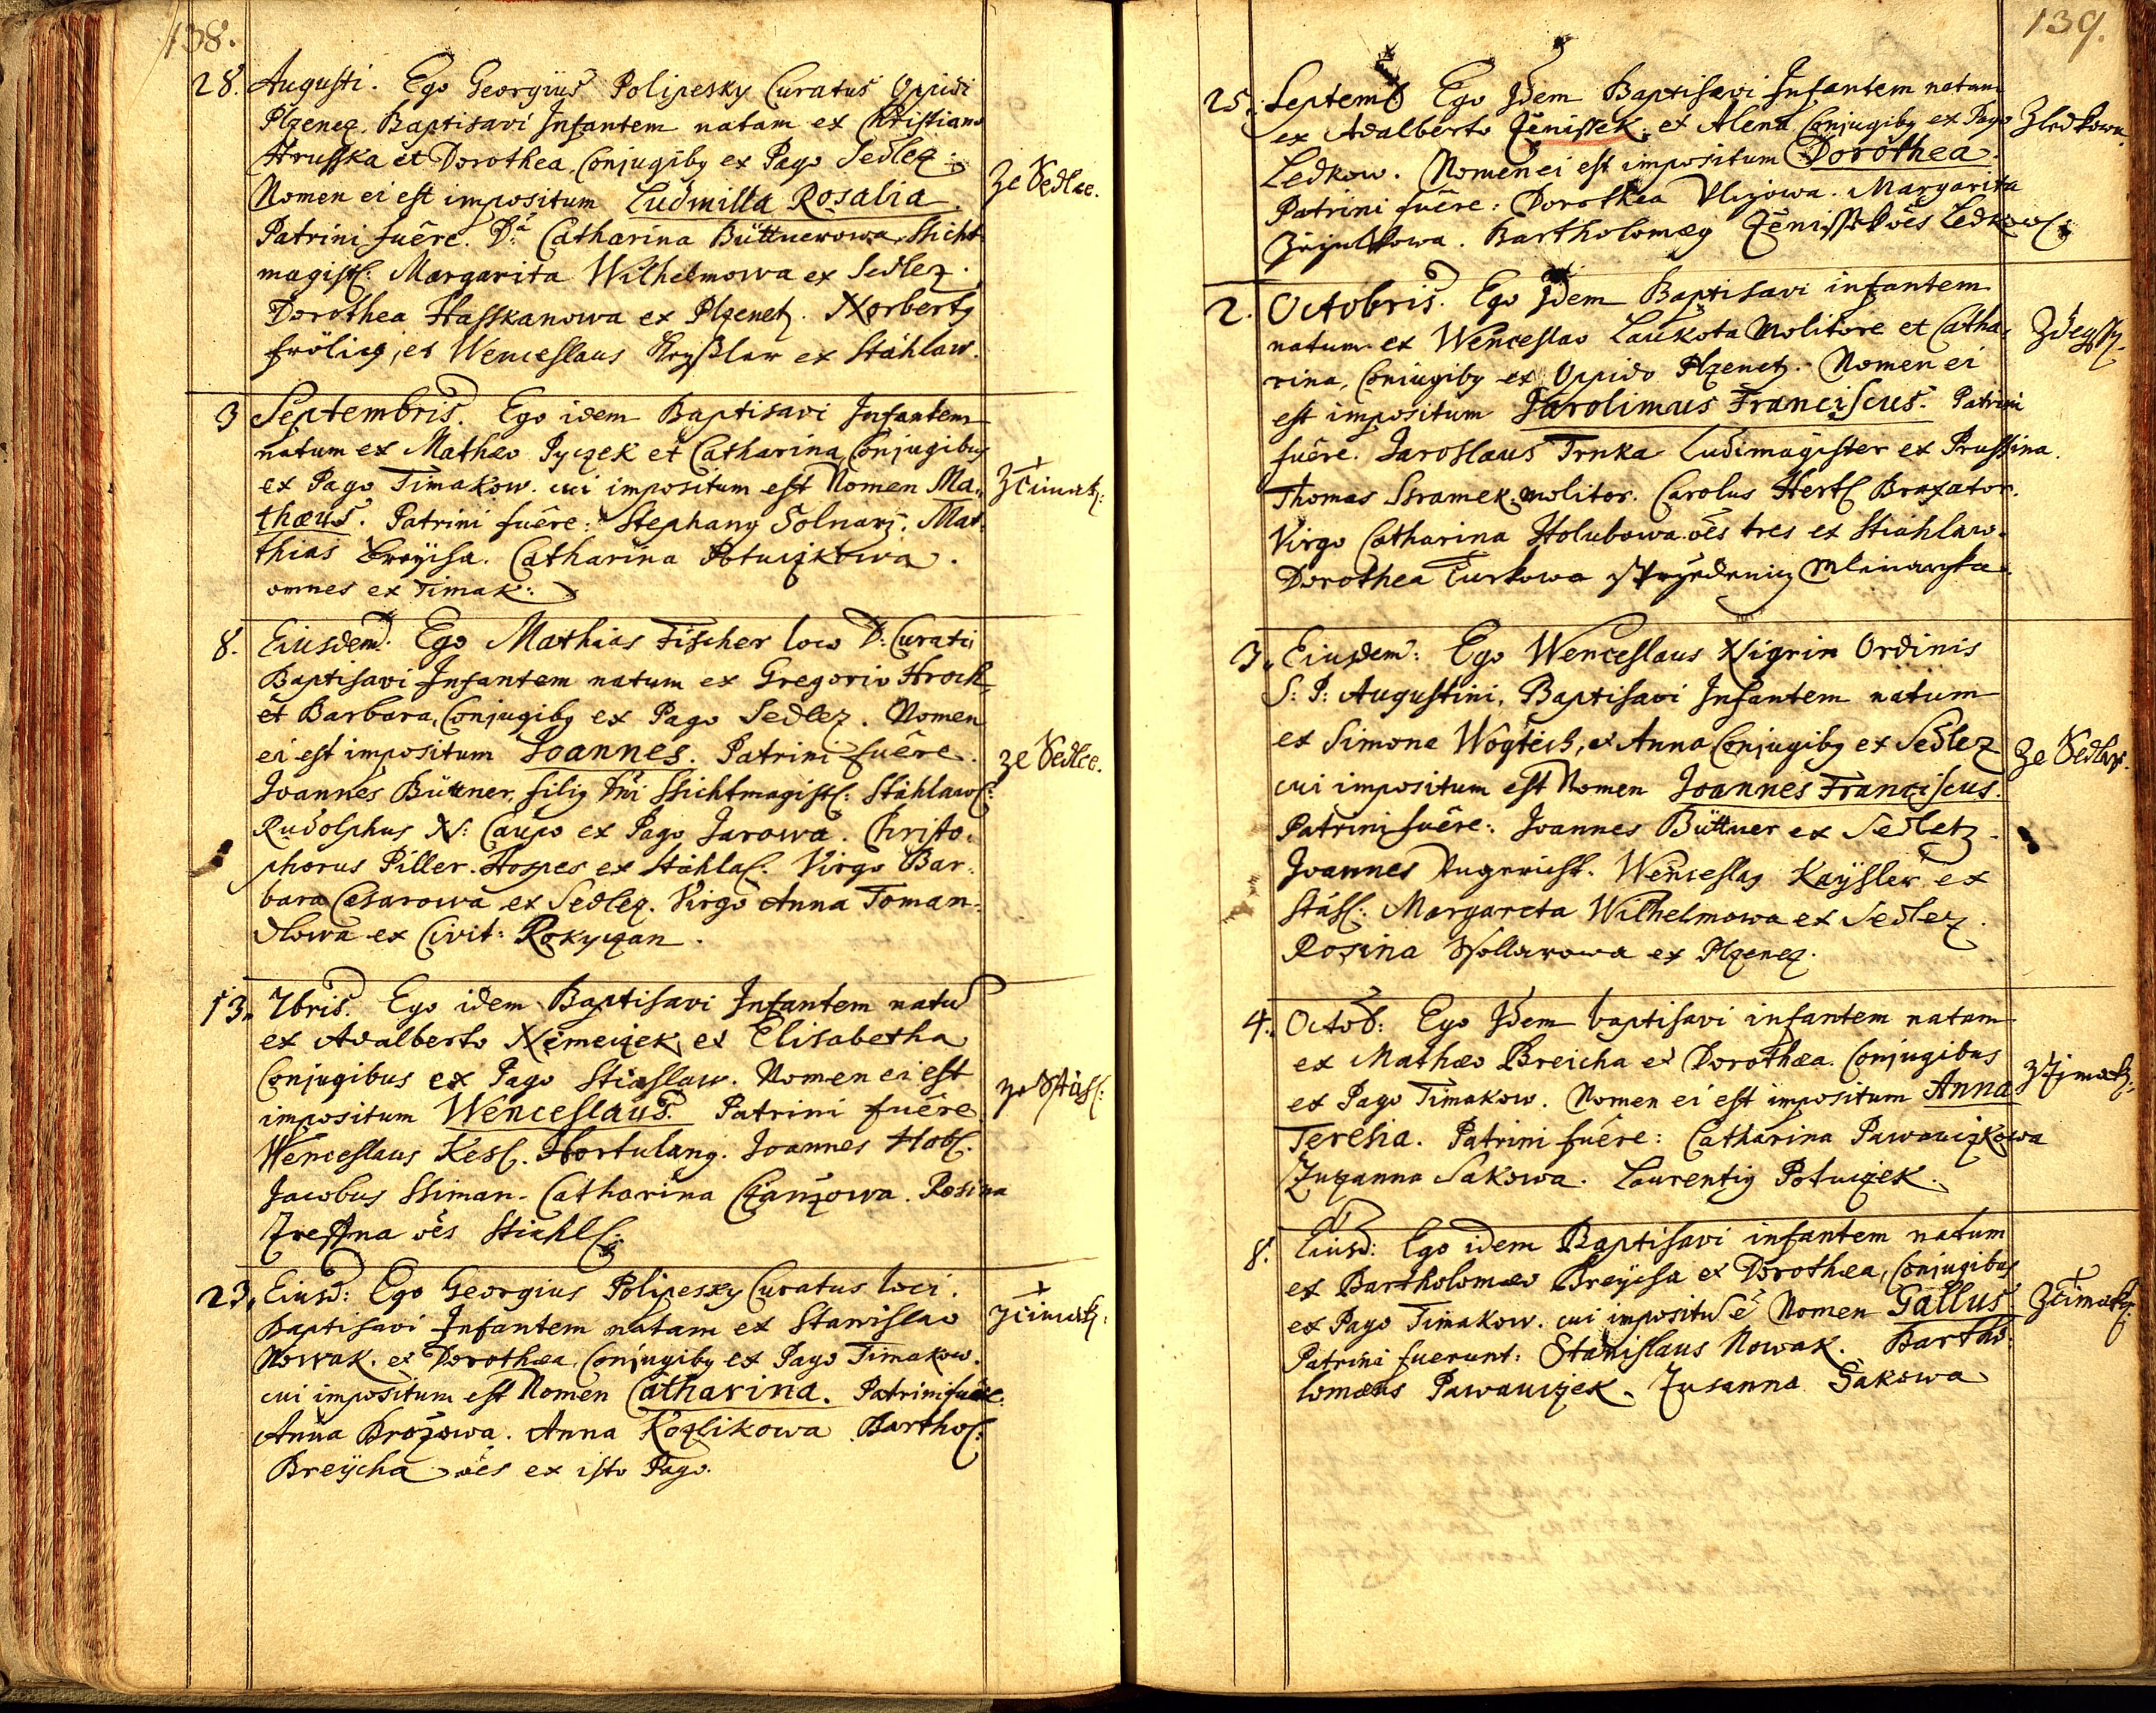 138.
28. Augusti. Ego Georgius Polipesky Curatus Oppidi
Plzeneč. Baptisavi Infantem natam ex Christiano
Hrusska et Dorothea, Conjugibg ex Pago Sedlez.
Nomen ei est impositum Ludmilla Rosalia.
ze Sedlce.
Patrini fuêre. D:a Catharina Büttnerowa, Shicht
magistl: Margarita Wilhelmowa ex Sedlez.
Dorothea Hasskanowa ex Plzenetz. Norbertg
frölich, et Wenceslaus ex Stáhlaw.
3 Septembris. Ego idem Baptisavi Infantem
natum ex Mathæo et Catharina Conjugibus
ex Pago Timakow. cui impositum est Nomen Ma„
ztimak:
thæus. Patrini fuêre: Stephang Solnarz. Mat„
thias Breÿcha. Catharina Potuczkowa.
omnes ex Timak:
8. Eiusdem. Ego Mathias Fischer loco D: Curati
Baptisavi Infantem natum ex Gregorio Hroch,
et Barbara, Conjugibg ex Pago Sedlez. Nomen
ei est impositum Joannes. Patrini fuêre.
ze Sedlce.
Joannes Büttner, filig Dni Shichtmagistl: Stáhlawl:
Rudolphus N: Caupo ex Pago Jarowa. Christo„
phorus Piller. Hospes ex Stáhlal. Virgo Bar„
bara Cæsarowa ex Sedlez. Virgo Anna Toman„
dlowa ex Civit: Rokyczan.
13. 7bris. Ego idem Baptisavi Infantem natu
ex Adalberto Nemeczek, et Elisabetha
Conjugibus ex Pago Stiaslaw. Nomen ei est
impositum Wenceslaus. Patrini fuêre
ze Stásl:
Wenceslaus Kesl. Hortulang. Joannes Hobl.
Jacobus Shiman. Catharina Czanzowa. Rosina
oēs Stiahll:
23. Eiusd: Ego Georgius Polipesky Curatus loci.
Baptisavi Infantem natam ex Stanislao
ztimak:
Nowak. et Dorothæa, Conjugibg ex Pago Timakow.
cui impositum est Nomen Catharina. Patrini fuêre:
Anna Brozowa. Anna Kozlikowa Barthol:
Breÿcha oēs ex isto Pago.
139.
25. Septemb Ego Idem Baptisavi Infantem natam
ex Adalberto Jenissek. et Alena Conjugibg ex Pago
z ledkowa.
Ledkow. Nomen ei est impositum Dorothea.
Patrini fuêre: Dorothea. Margarita
Bartholomæg Jenissek oēs Ledkowl:
2. Octobris. Ego Idem Baptisavi infantem
natum ex Wenceslao Laukota Molitore et Catha„
rina, Conjugibg ex Oppido Plzenetz. Nomen ei
est impositum Jarolimus Franciscus. Patrini
fuêre. Jaroslaus Trnka Ludimagister ex Prussina.
Thomas Sramek. molitor. Carolus Hertl Braxator.
Virgo Catharina Holubowa. oēs tres ex Stiahlaw.
Dorothea Turkowa mlinarzka.
3. Eiusdem: Ego Wenceslaus Nigrin Ordinis
S: P: Augustini, Baptisavi Infantem natum
ex Simone Wogtiech, et Anna Conjugibg ex Sedlez
ze Sedlcze.
cui impositum est Nomen Joannes Franciscus.
Patrini fuêre: Joannes Büttner ex Sedletz.
Joannes Wenceslag Kaÿsler ex
Stásl: Margareta Wilhelmowa ex Sedlez.
Rosina ex Plzenez.
4. Octob: Ego Idem baptisavi infantem natam
ex Mathæo Breicha et Dorothæa. Conjugibus
ex Pago Timakow. Nomen ei est impositum Anna
ztimak:
Teresia. Patrini fuêre: Catharina Pawauczkowa
Zuzanna Sakowa. Laurentig Potuczek.
8. Eiusd: Ego idem Baptisavi infantem natum
ex Bartholomæo Breÿcha et Dorothæa, Conjugibus
ex Pago Timakow. cui impositu ē Nomen Gallus
ztimak:
Patrini fuerunt: Stanislaus Nowak. Bartho„
lomæus Pawauczek. Zusanna Sakowa